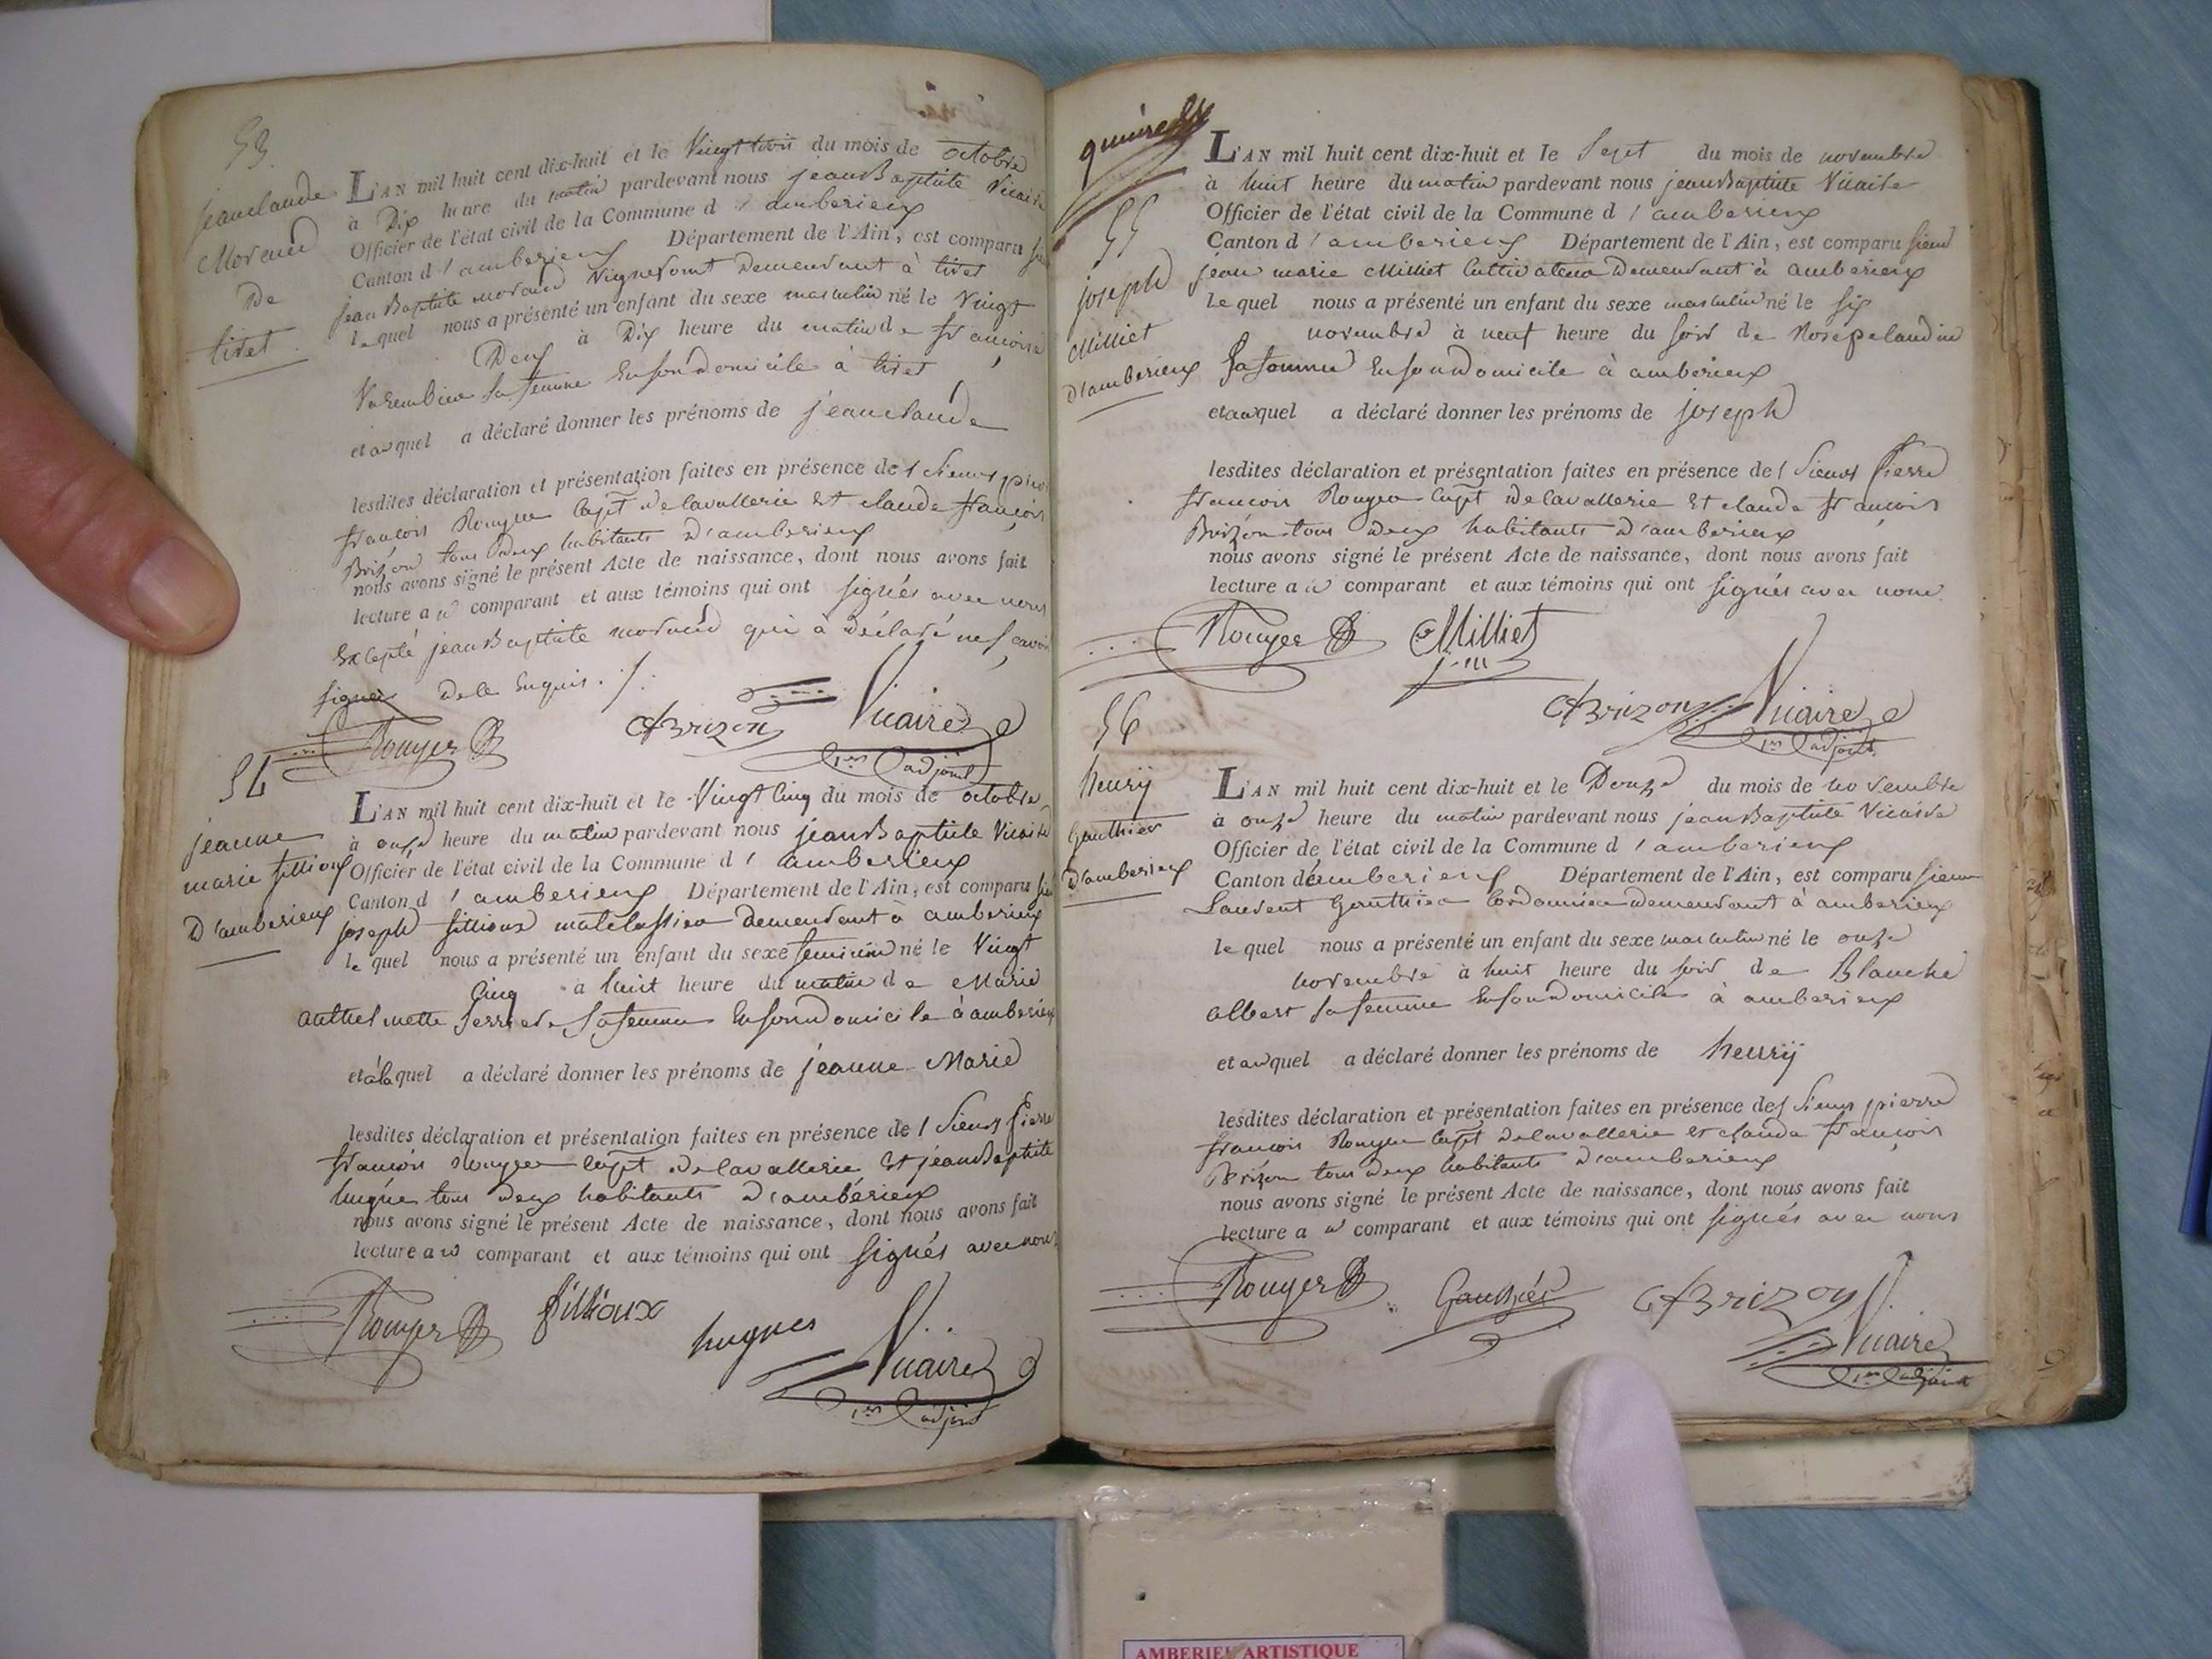 53
jeanclaude
Moraud
De
tiret
L'AN mil huit cent dix-huit et le Vingt trois du mois de octobre
à Dix heure du matin pardevant nous jean Baptiste Vicaire
Officier de l'état civil de la Commune d'amberieux
Canton d'amberieux Département de l'Ain, est comparu
jean Baptiste moraud Vigneront Demeurant à tiret
le quel nous a présenté un enfant du sexe masculin né le Vingt
Deux à Dix heure du matin de françoise
sa femme En son Domicile à tiret
et auquel a déclaré donner les prénoms de jeanclaude
lesdites déclaration et présentation faites en présence des Sieurs pierre
françois Rouyer Capt De Cavallerie Et claude françois
Brizon tous Deux habitants D'amberieux
nous avons signé le présent Acte de naissance, dont nous avons fait
lecture au comparant et aux témoins qui ont signés avec nous
Excepté jean Baptiste moraud qui à Déclaré ne savoir
signer De le Enquis ./.
Rouyer CfBrizon Vicaire
1er adjoint
54
jeanne
marie fillioux
D'amberieux
L'AN mil huit cent dix-huit et le Vingt Cinq du mois de octobre
à onze heure du matin pardevant nous jean Baptiste Vicaire
Officier de l'état civil de la Commune d'amberieux
Canton d'amberieux Département de l'Ain, est comparu
joseph fillioux matelassier demeurant à amberieux
le quel nous a présenté un enfant du sexe feminin né le Vingt
Cinq à huit heure du matin de Marie
sa femme En son Domicile à amberieux
et à laquel a déclaré donner les prénoms de jeanne Marie
lesdites déclaration et présentation faites en présence des Sieurs Pierre
françois Rouyer Capt De Cavallerie Et jean Baptiste
hugue tous Deux habitants D'ambérieux
nous avons signé le présent Acte de naissance, dont nous avons fait
lecture au comparant et aux témoins qui ont signés avec nous
Rouyer fillioux hugues Vicaire
1er adjoint
55
joseph
Milliet
D'amberieux
L'AN mil huit cent dix-huit et le Sept du mois de novembre
à huit heure du matin pardevant nous jean Baptiste Vicaire
Officier de l'état civil de la Commune d'amberieux
Canton d'amberieux Département de l'Ain, est comparu sieur
jean marie Milliet Cultivateur Demeurant à amberieux
le quel nous a présenté un enfant du sexe masculin né le six
novembre à neuf heure du soir de Rose pelaudin
sa femme En son Domicile à amberieux
et auquel a déclaré donner les prénoms de joseph
lesdites déclaration et présentation faites en présence des Sieurs Pierre
francois Rouyer Capt De Cavallerie Et claude françois
Brizon tous Deux habitants D'amberieux
nous avons signé le présent Acte de naissance, dont nous avons fait
lecture au comparant et aux témoins qui ont signés avec nous
Rouyer Milliet
CfBrizon Vicaire
1er adjoint
56
henrÿ
Gauthier
D'amberieux
L'AN mil huit cent dix-huit et le Douze du mois de novembre
à onze heure du matin pardevant nous jean Baptiste Vicaire
Officier de l'état civil de la Commune d'amberieux
Canton d'amberieux Département de l'Ain, est comparu sieur
Laurent Gauthier Cordonnier demeurant à amberieux
le quel nous a présenté un enfant du sexe masculin né le onze
novembre à huit heure du soir de Blanche
albert sa femme En son Domicile à amberieux
et auquel a déclaré donner les prénoms de henrÿ
lesdites déclaration et présentation faites en présence des Sieurs pierre
françois Rouyer Capt De Cavallerie et claude françois
Brizon tous Deux habitants D'amberieux
nous avons signé le présent Acte de naissance, dont nous avons fait
lecture au comparant et aux témoins qui ont signés avec nous
Rouyer Gauthier CfBrizon
Vicaire
1er adjoint
ARTISTIQUE